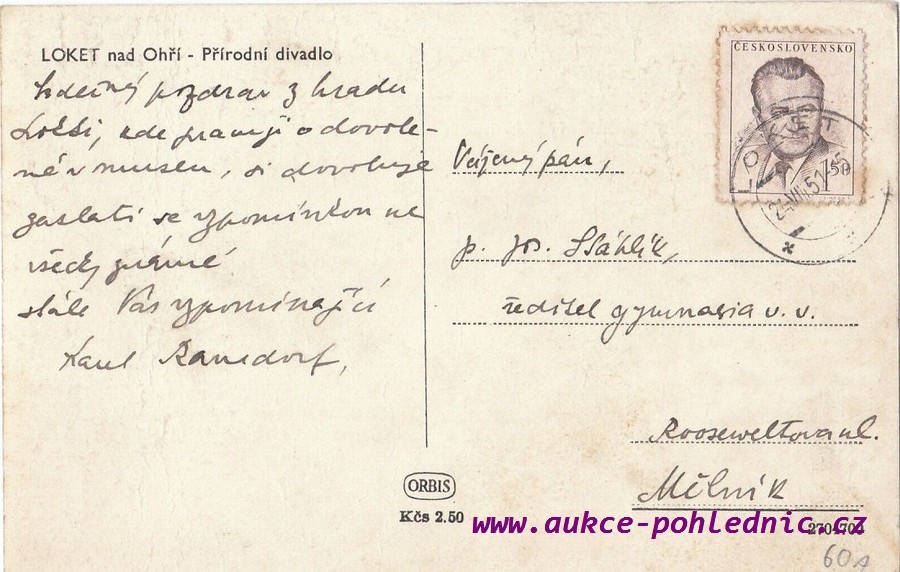 LOKET nad Ohří - Přírodní divadlo
Srdečný pozdrav z hradu
Lokti, kde pracuji o dovole-
né v museu, si dovoluje
zaslati se vzpomínkou na
všecky známé
stále Vás vzpomínající
Karel
ČESKOSLOVENSKO
1.50
LOKET
Vážený pán,
p. Jos. Sláhlík,
ředitel gymnasia v. v.
Rooseweltova ul.
Mělník
ORBIS
Kčs 2.50
www.aukce-pohlednic.cz
60